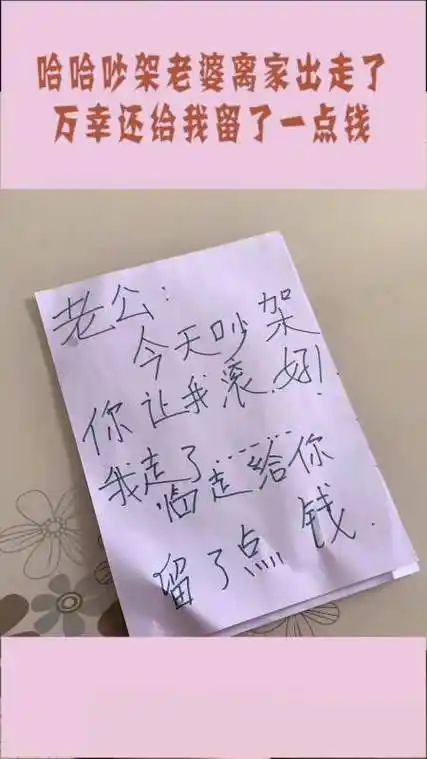 哈哈吵架老婆离家出走了
万幸还给我留了一点钱
老公:
今天吵架
你让我滚.好!
我走了......
临走给你
留了点 钱.